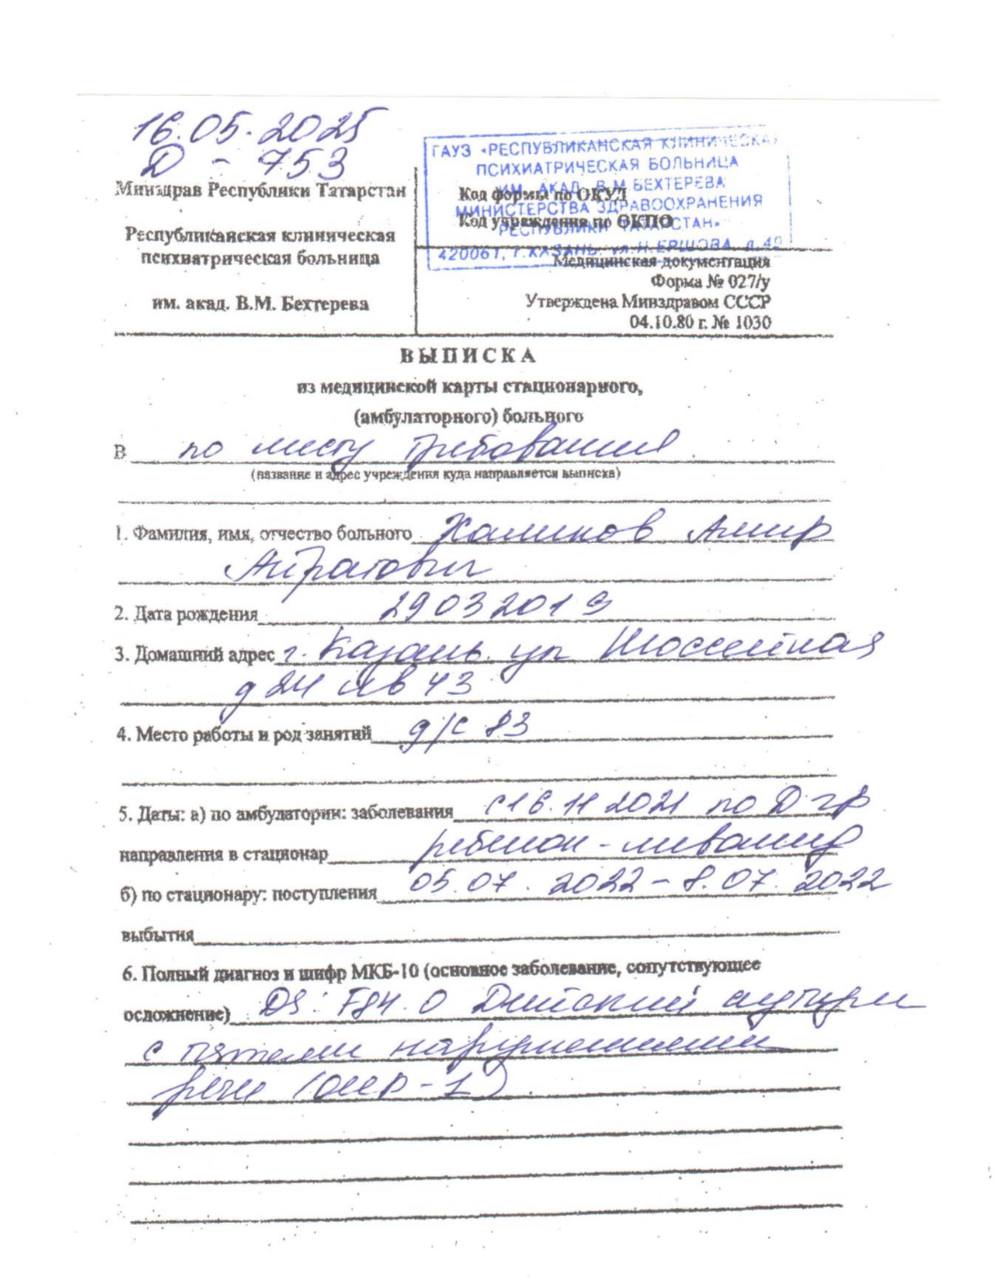 16.05.2025
Д - 753
ГАУЗ «РЕСПУБЛИКАНСКАЯ КЛИНИЧЕСКАЯ
ПСИХИАТРИЧЕСКАЯ БОЛЬНИЦА
ИМ. АКАД. В.М.БЕХТЕРЕВА
МИНИСТЕРСТВА ЗДРАВООХРАНЕНИЯ
РЕСПУБЛИКИ ТАТАРСТАН»
420061, Г.КАЗАНЬ, ул.Н.ЕРШОВА, д.49
Минздрав Республики Татарстан
Республиканская клиническая
психиатрическая больница
им. акад. В.М. Бехтерева
Код формы по ОКУД
Код учреждения по ОКПО
Медицинская документация
Форма № 027/у
Утверждена Минздравом СССР
04.10.80 г. № 1030
ВЫПИСКА
из медицинской карты стационарного,
(амбулаторного) больного
В по месту требования
(название и адрес учреждения куда направляется выписка)
1. Фамилия, имя, отчество больного Халиков Амир
Айратович
2. Дата рождения 29 03 2019
3. Домашний адрес г. Казань ул Шоссейная
д 24 кв 43
4. Место работы и род занятий д/с 83
5. Даты: а) по амбулатории: заболевания с 16.11 2021 по Д гр
направления в стационар ребенок-инвалид
б) по стационару: поступления 05.07.2022 – 8.07.2022
выбытия
6. Полный диагноз и шифр МКБ-10 (основное заболевание, сопутствующее
осложнение) DS: F84.0 Детский аутизм
с нарушениями
речи (ОНР-1)